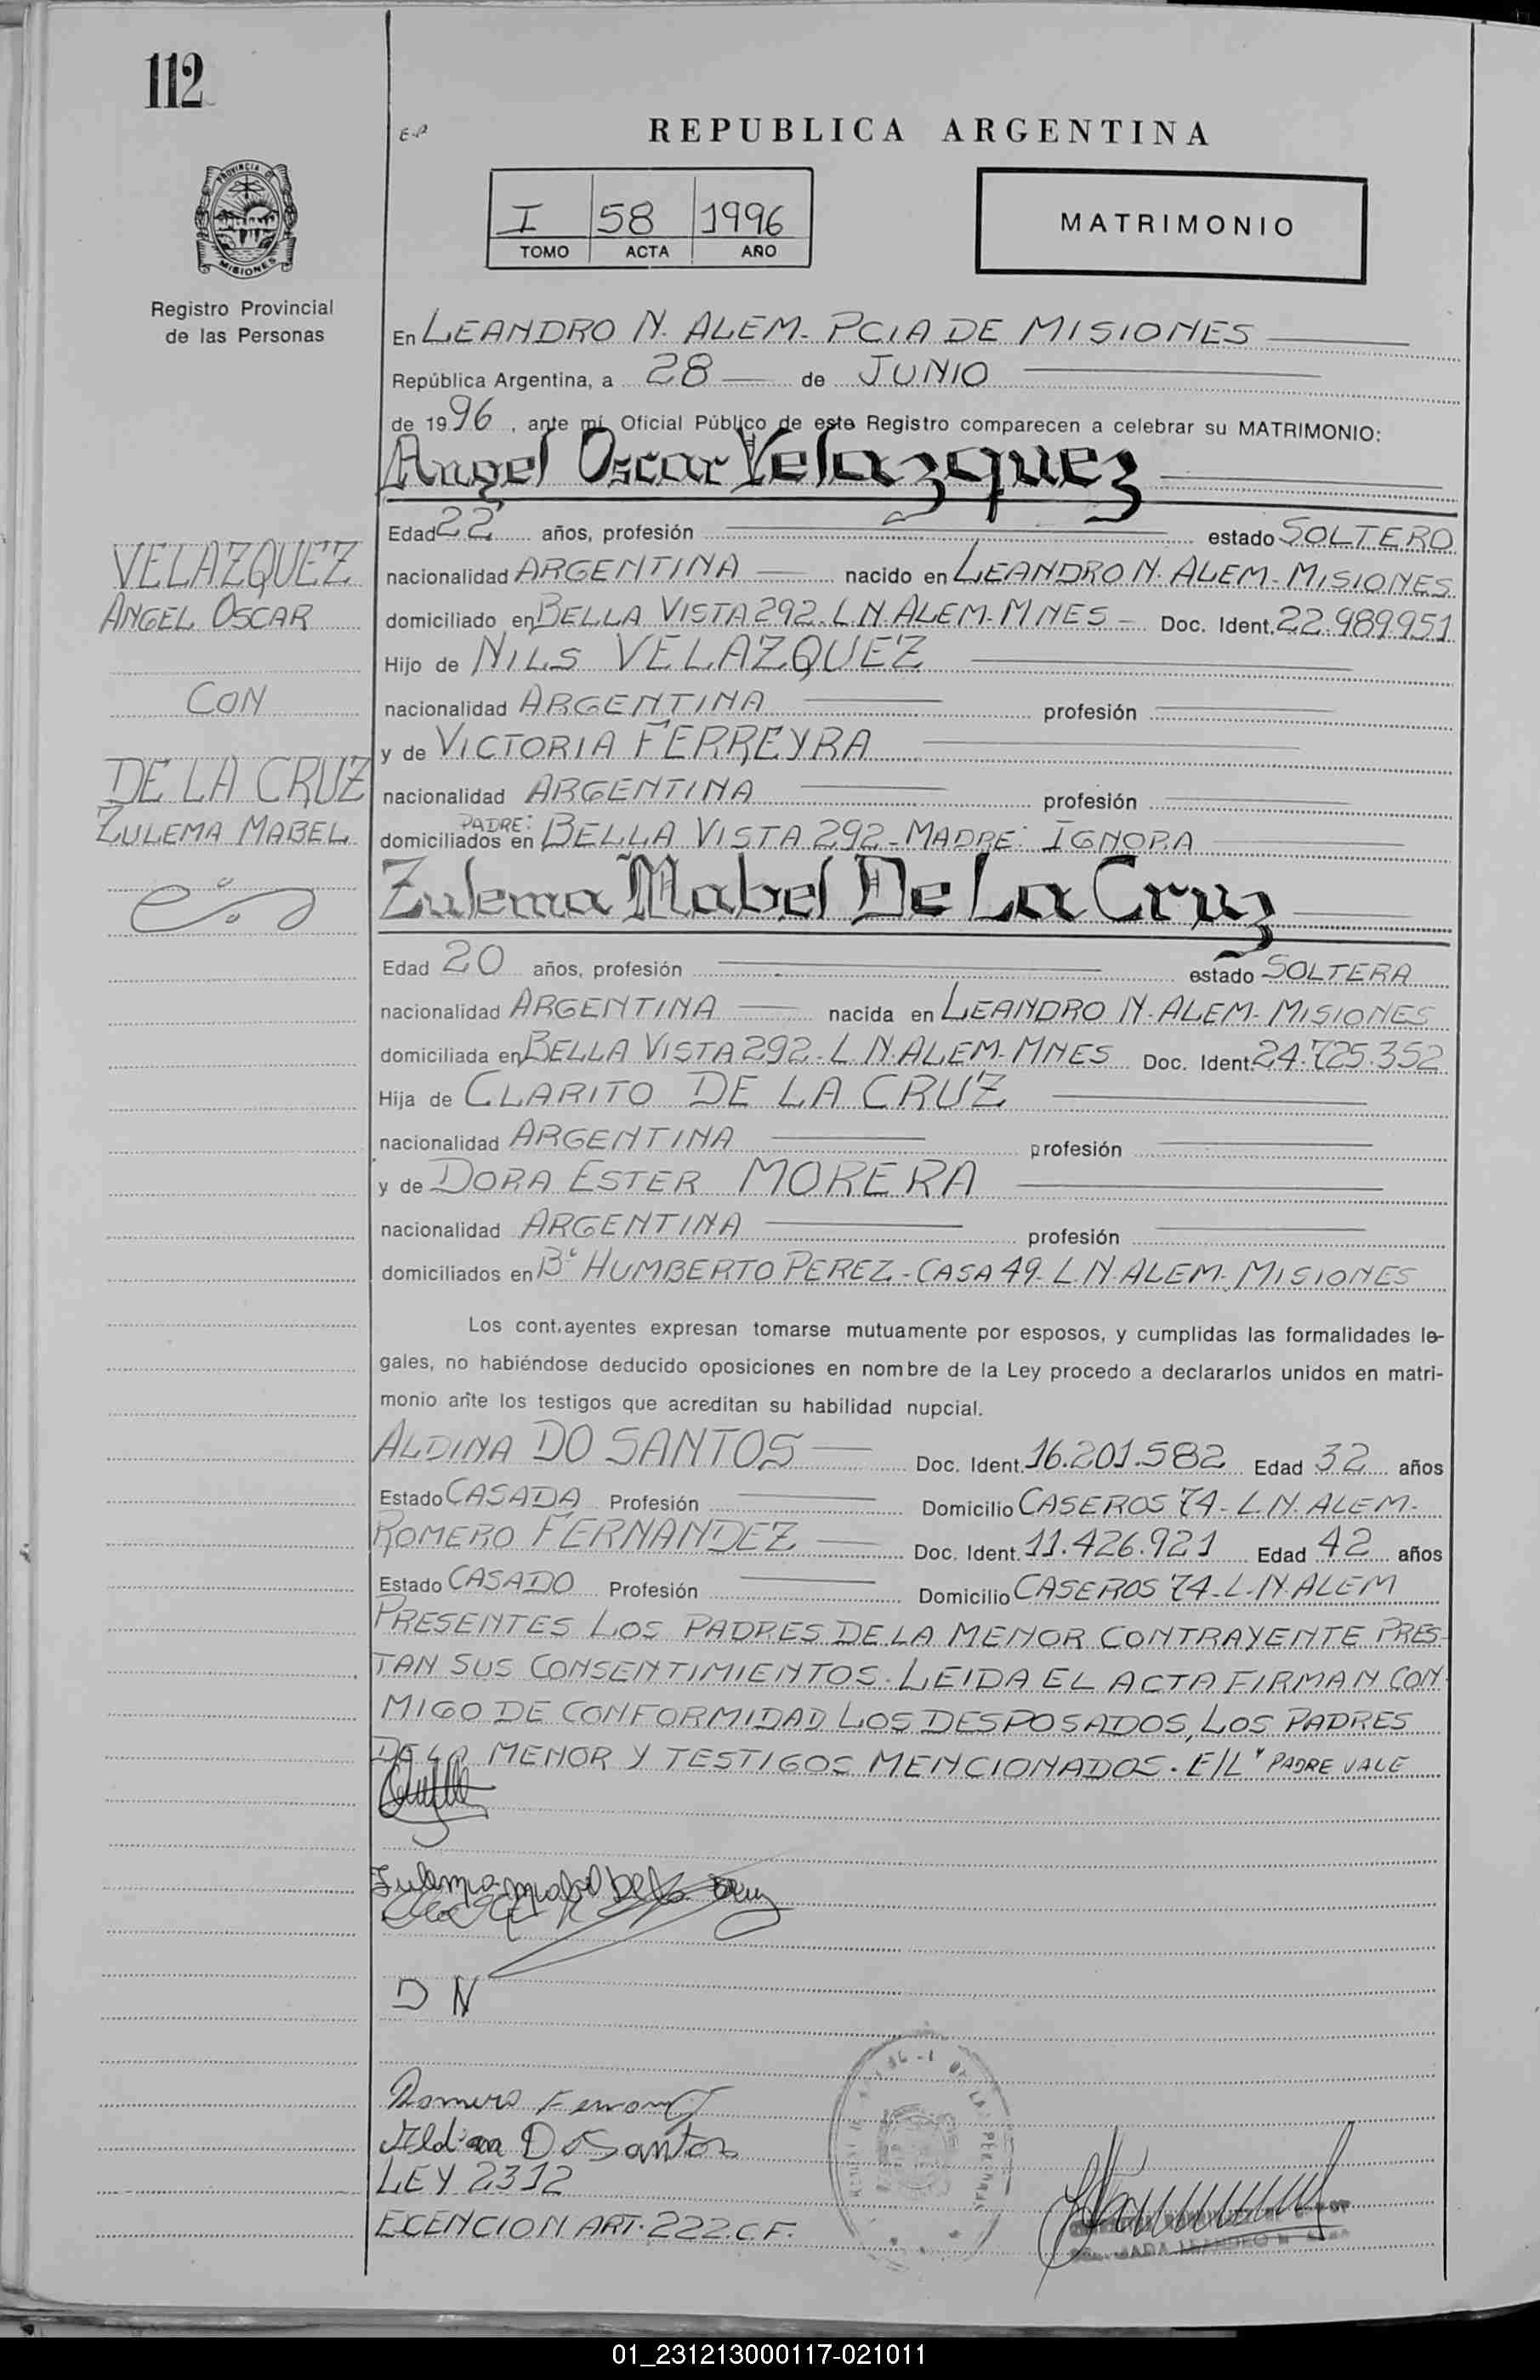 112
E-P
REPUBLICA ARGENTINA
PROVINCIA DE
MISIONES
Registro Provincial
de las Personas
I 58 1996
TOMO ACTA AÑO
MATRIMONIO
En LEANDRO N. ALEM - PCIA DE MISIONES
República Argentina, a 28 de JUNIO
de 1996, ante mí, Oficial Público de este Registro comparecen a celebrar su MATRIMONIO:
Angel Oscar Velazquez
Edad 22 años, profesión estado SOLTERO
nacionalidad ARGENTINA nacido en LEANDRO N. ALEM - MISIONES
domiciliado en BELLA VISTA 292 - L.N. ALEM - MNES - Doc. Ident. 22.989.951
Hijo de NILS VELAZQUEZ
nacionalidad ARGENTINA profesión
y de VICTORIA FERREYRA
nacionalidad ARGENTINA profesión
PADRE:
domiciliados en BELLA VISTA 292 - MADRE: IGNORA
VELAZQUEZ
ANGEL OSCAR
CON
DE LA CRUZ
ZULEMA MABEL
Zulema Mabel De La Cruz
Edad 20 años, profesión estado SOLTERA
nacionalidad ARGENTINA nacida en LEANDRO N. ALEM - MISIONES
domiciliada en BELLA VISTA 292 - L.N. ALEM - MNES Doc. Ident. 24.725.352
Hija de CLARITO DE LA CRUZ
nacionalidad ARGENTINA profesión
y de DORA ESTER MORERA
nacionalidad ARGENTINA profesión
domiciliados en B° HUMBERTO PEREZ - CASA 49 - L.N. ALEM - MISIONES
Los cont.ayentes expresan tomarse mutuamente por esposos, y cumplidas las formalidades le-
gales, no habiéndose deducido oposiciones en nombre de la Ley procedo a declararlos unidos en matri-
monio ante los testigos que acreditan su habilidad nupcial.
ALDINA DO SANTOS Doc. Ident. 16.201.582 Edad 32 años
Estado CASADA Profesión Domicilio CASEROS 74 - L.N. ALEM.
ROMERO FERNANDEZ Doc. Ident. 11.426.921 Edad 42 años
Estado CASADO Profesión Domicilio CASEROS 74 - L.N. ALEM
PRESENTES LOS PADRES DE LA MENOR CONTRAYENTE PRES-
TAN SUS CONSENTIMIENTOS. LEIDA EL ACTA FIRMAN CON-
MIGO DE CONFORMIDAD LOS DESPOSADOS, LOS PADRES
DE LA MENOR Y TESTIGOS MENCIONADOS. E/L "PADRE VALE
Zulema mabel De la Cruz
D N
Romero Fernand
Aldina Do Santos
LEY 2312
EXENCION ART. 222.C.F.
DE LAS PERSONAS
LEANDRO N. ALEM
01_231213000117-021011